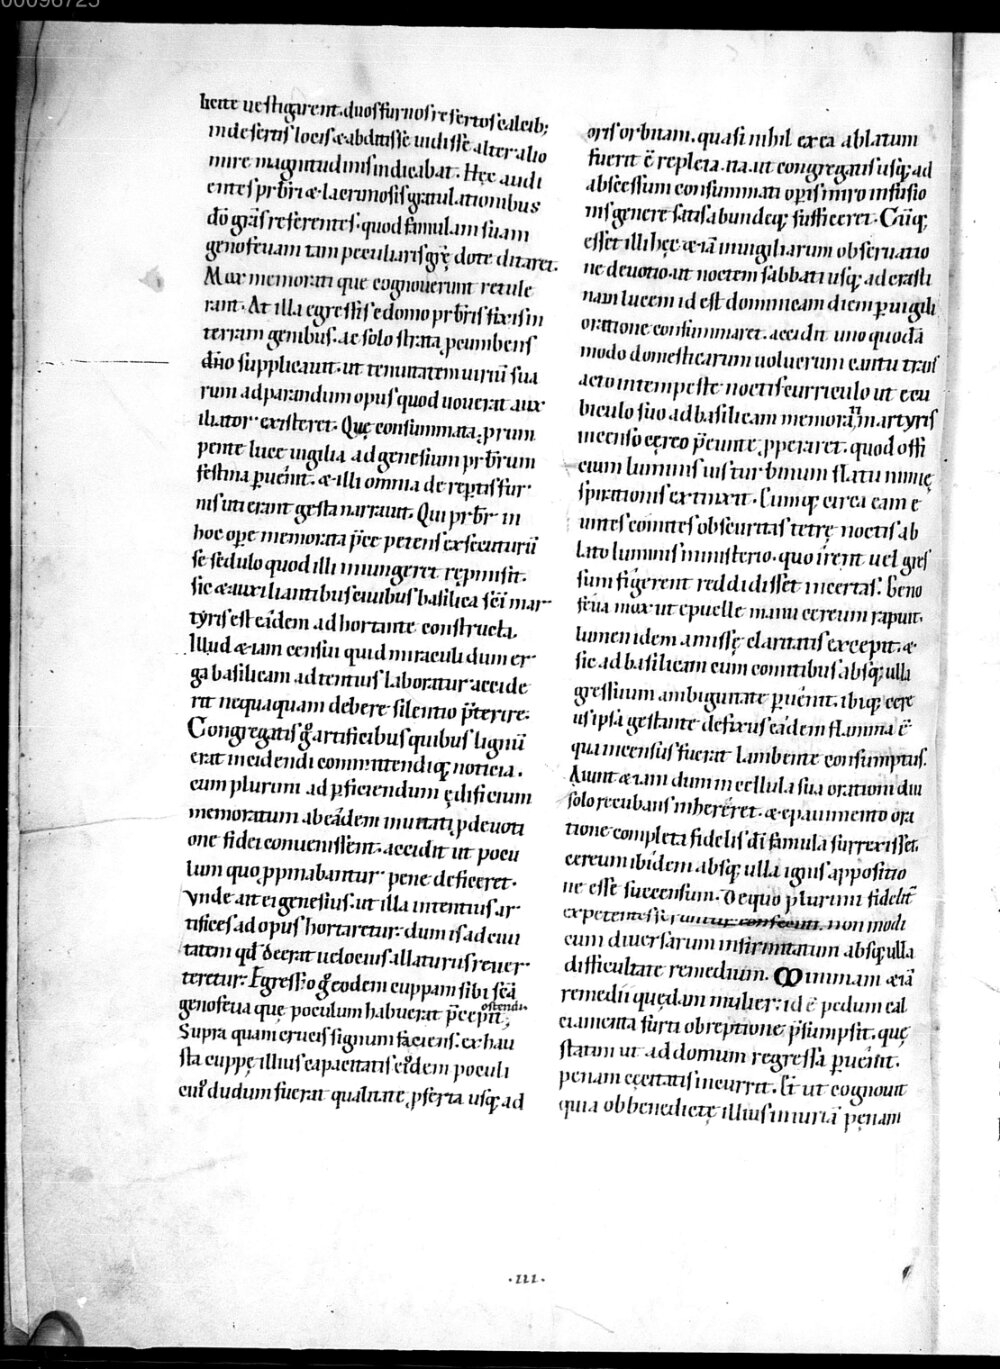 00098725
licite uestigarent. duos furnos refertos calcib;
in desertis locis & abditis se uidisse alter alio
mire magnitudinis indicabat. Hęc audi
entes prb̄ri & lacrimosis gratulationibus
dō grās referentes. quod famulam suam
genofeuam tam peculiaris grę̄ dote ditaret.
Mox memorati que cognouerunt retule
rant. At illa egressis e domo prb̄ris fixis in
terram genibus. ac solo strata pcumbens
dn̄o supplicauit. ut tenuitatem uiriū sua
rum ad parandum opus quod uouerat auxi
liator existeret. Quę consummata prum
pente luce uigilia ad genesium prb̄rum
festina puenit. & illi omnia de reptis fur
nis uti erant gesta narrauit. Qui prb̄r in
hoc ope memorata p̄ce petens exsecuturū
se sedulo quod illi iniungeret rępmisit.
sic & auxiliantibus ciuibus basilica sc̄i mar
tyris est eādem ad hortante constructa.
Illud & iam censui quid miraculi dum er
ga basilicam adtentius laboratur accide
rit nequaquam debere silentio p̄terire.
Congregatis g̊ artificibus quibus lignū
erat incidendi committendiq; noticia.
cum plurimi ad pficiendum ędificium
memoratum ab eādem inuitati p deuoti
one fidei conuenissent. accidit ut pocu
lum quo ppinabantur pene deficeret.
Vnde ait ei genesius. ut illa intentius ar
tifices ad opus hortaretur. dum is ad ciui
tatem qd̄ deerat uelocius allaturus reuer
teretur. Egresso g̊ eodem cuppam sibi sc̄a
genofeua quę poculum habuerat p̄cepit ostendi.
Supra quam crucis signum faciens. ex hau
sta cuppę illius capacitatis eidem poculi
cui dudum fuerat qualitate pserta usq; ad
oris orbitam. quasi nihil ex ea ablatum
fuerit ē repleta. ita ut congregatis usq; ad
abscessum consummati opis miro infusio
nis genere satis abundeq; sufficeret. Cūq;
esset illi hęc & iā inuigiliarum obseruatio
ne deuotio. ut noctem sabbati usq; ad crasti
nam lucem id est dominicam diem puigili
oratione consummaret. accidit uno quodā
modo domesticarum uolucrum cantu trans
acto intempeste noctis curriculo ut e cu
biculo suo ad basilicam memorati martyris
incenso cęreo p̄eunte pperaret. quod offi
cium luminis uis turbinum flatu nimię
spirationis extinxit. Cumq; circa eam e
untes comites obscuritas tetrę noctis ab
lato luminis ministerio. quo irent uel gres
sum figerent reddidisset incertas. Geno
feua mox ut e puelle manu cereum rapuit.
lumen idem amissę claritatis excepit. &
sic ad basilicam cum comitibus absq; ulla
gressuum ambiguitate puenit. ibiq; cere
us ipsa gestante defixus eādem flamma ē
qua incensus fuerat lambente consumptus.
Aiunt & iam dum in cellula sua orationi diu
solo recubans inhereret. & e pauimento ora
tione completa fidelis dī famula surrexisset.
cereum ibidem absq; ulla ignis appositio
ne esse succensum. De quo plurimi fidelit̄
expetentes non modi
cum diuersarum infirmitatum absq; ulla
difficultate remedium. Nimiam & iā
remedii quędam mulier. id ē pedum cal
ciamenta furti obreptione p̄sumpsit. quę
statim ut ad domum regressa puenit.
penam cęcitatis incurrit. Et ut cognouit
quia ob benedictę illius iniuriā pęnam
.III.